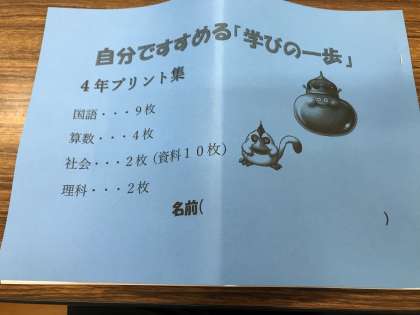 自分ですすめる「学びの一歩」
４年プリント集
国語・・・９枚
算数・・・４枚
社会・・・２枚（資料１０枚）
理科・・・２枚
名前（　　　　　　　　）